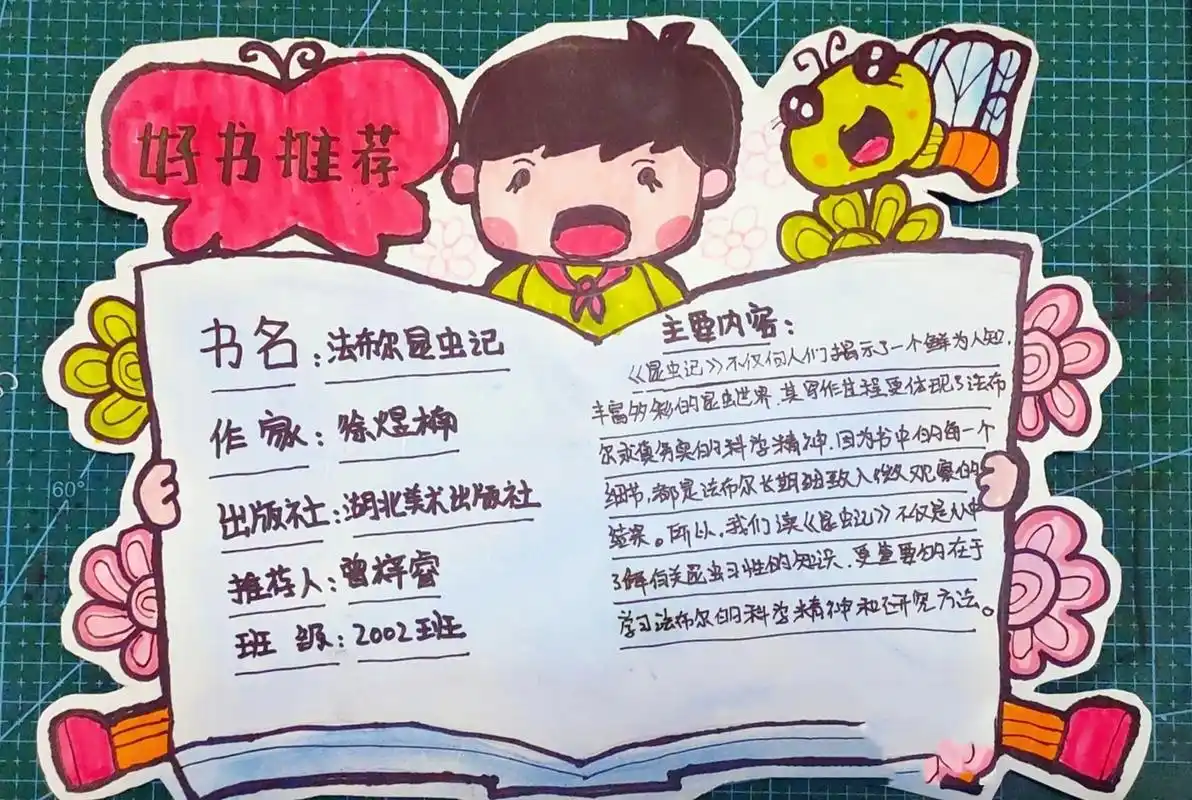 好书推荐
书名:法布尔昆虫记
作家:徐煜楠
出版社:湖北美术出版社
推荐人:曾梓睿
班级:2002班
主要内容:
《昆虫记》不仅向人们揭示了一个鲜为人知,
丰富多彩的昆虫世界,其写作过程更体现了法布
尔求真务实的科学精神,因为书中的每一个
细节,都是法布尔长期细致入微观察的
结果。所以,我们读《昆虫记》不仅是从中
了解有关昆虫习性的知识,更重要的在于
学习法布尔的科学精神和研究方法。
60°